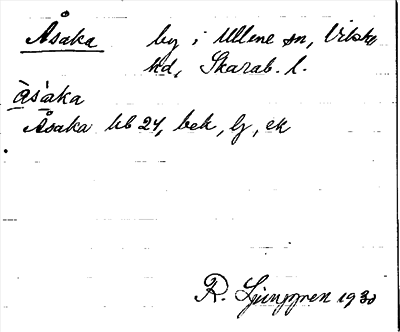 Åsaka by i Ullene sn, Vilske
hd, Skarab. l.
àsáka
Åsaka hb 24, bek, lj, ek
R. Ljunggren 1930